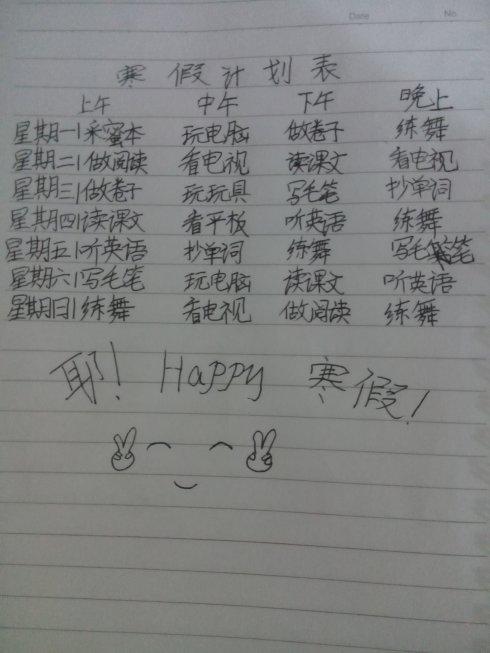 Date No.
寒假计划表
上午 中午 下午 晚上
星期一|采蜜本 玩电脑 做卷子 练舞
星期二|做阅读 看电视 读课文 看电视
星期三|做卷子 玩玩具 写毛笔 抄单词
星期四|读课文 看平板 听英语 练舞
星期五|听英语 抄单词 练舞 写毛笔
星期六|写毛笔 玩电脑 读课文 听英语
星期日|练舞 看电视 做阅读 练舞
耶! Happy 寒假!